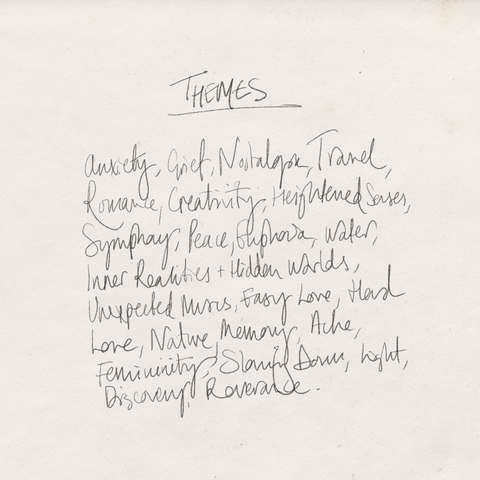 THEMES
Anxiety, Grief, Nostalgia, Travel,
Romance, Creativity, Heightened Senses,
Symphony, Peace, Euphoria, Water,
Inner Realities + Hidden Worlds,
Unexpected Muses, Easy Love, Hard
Love, Native Memory, Ache,
Femininity, Slowing Down, Light,
Discovery, Reverance.